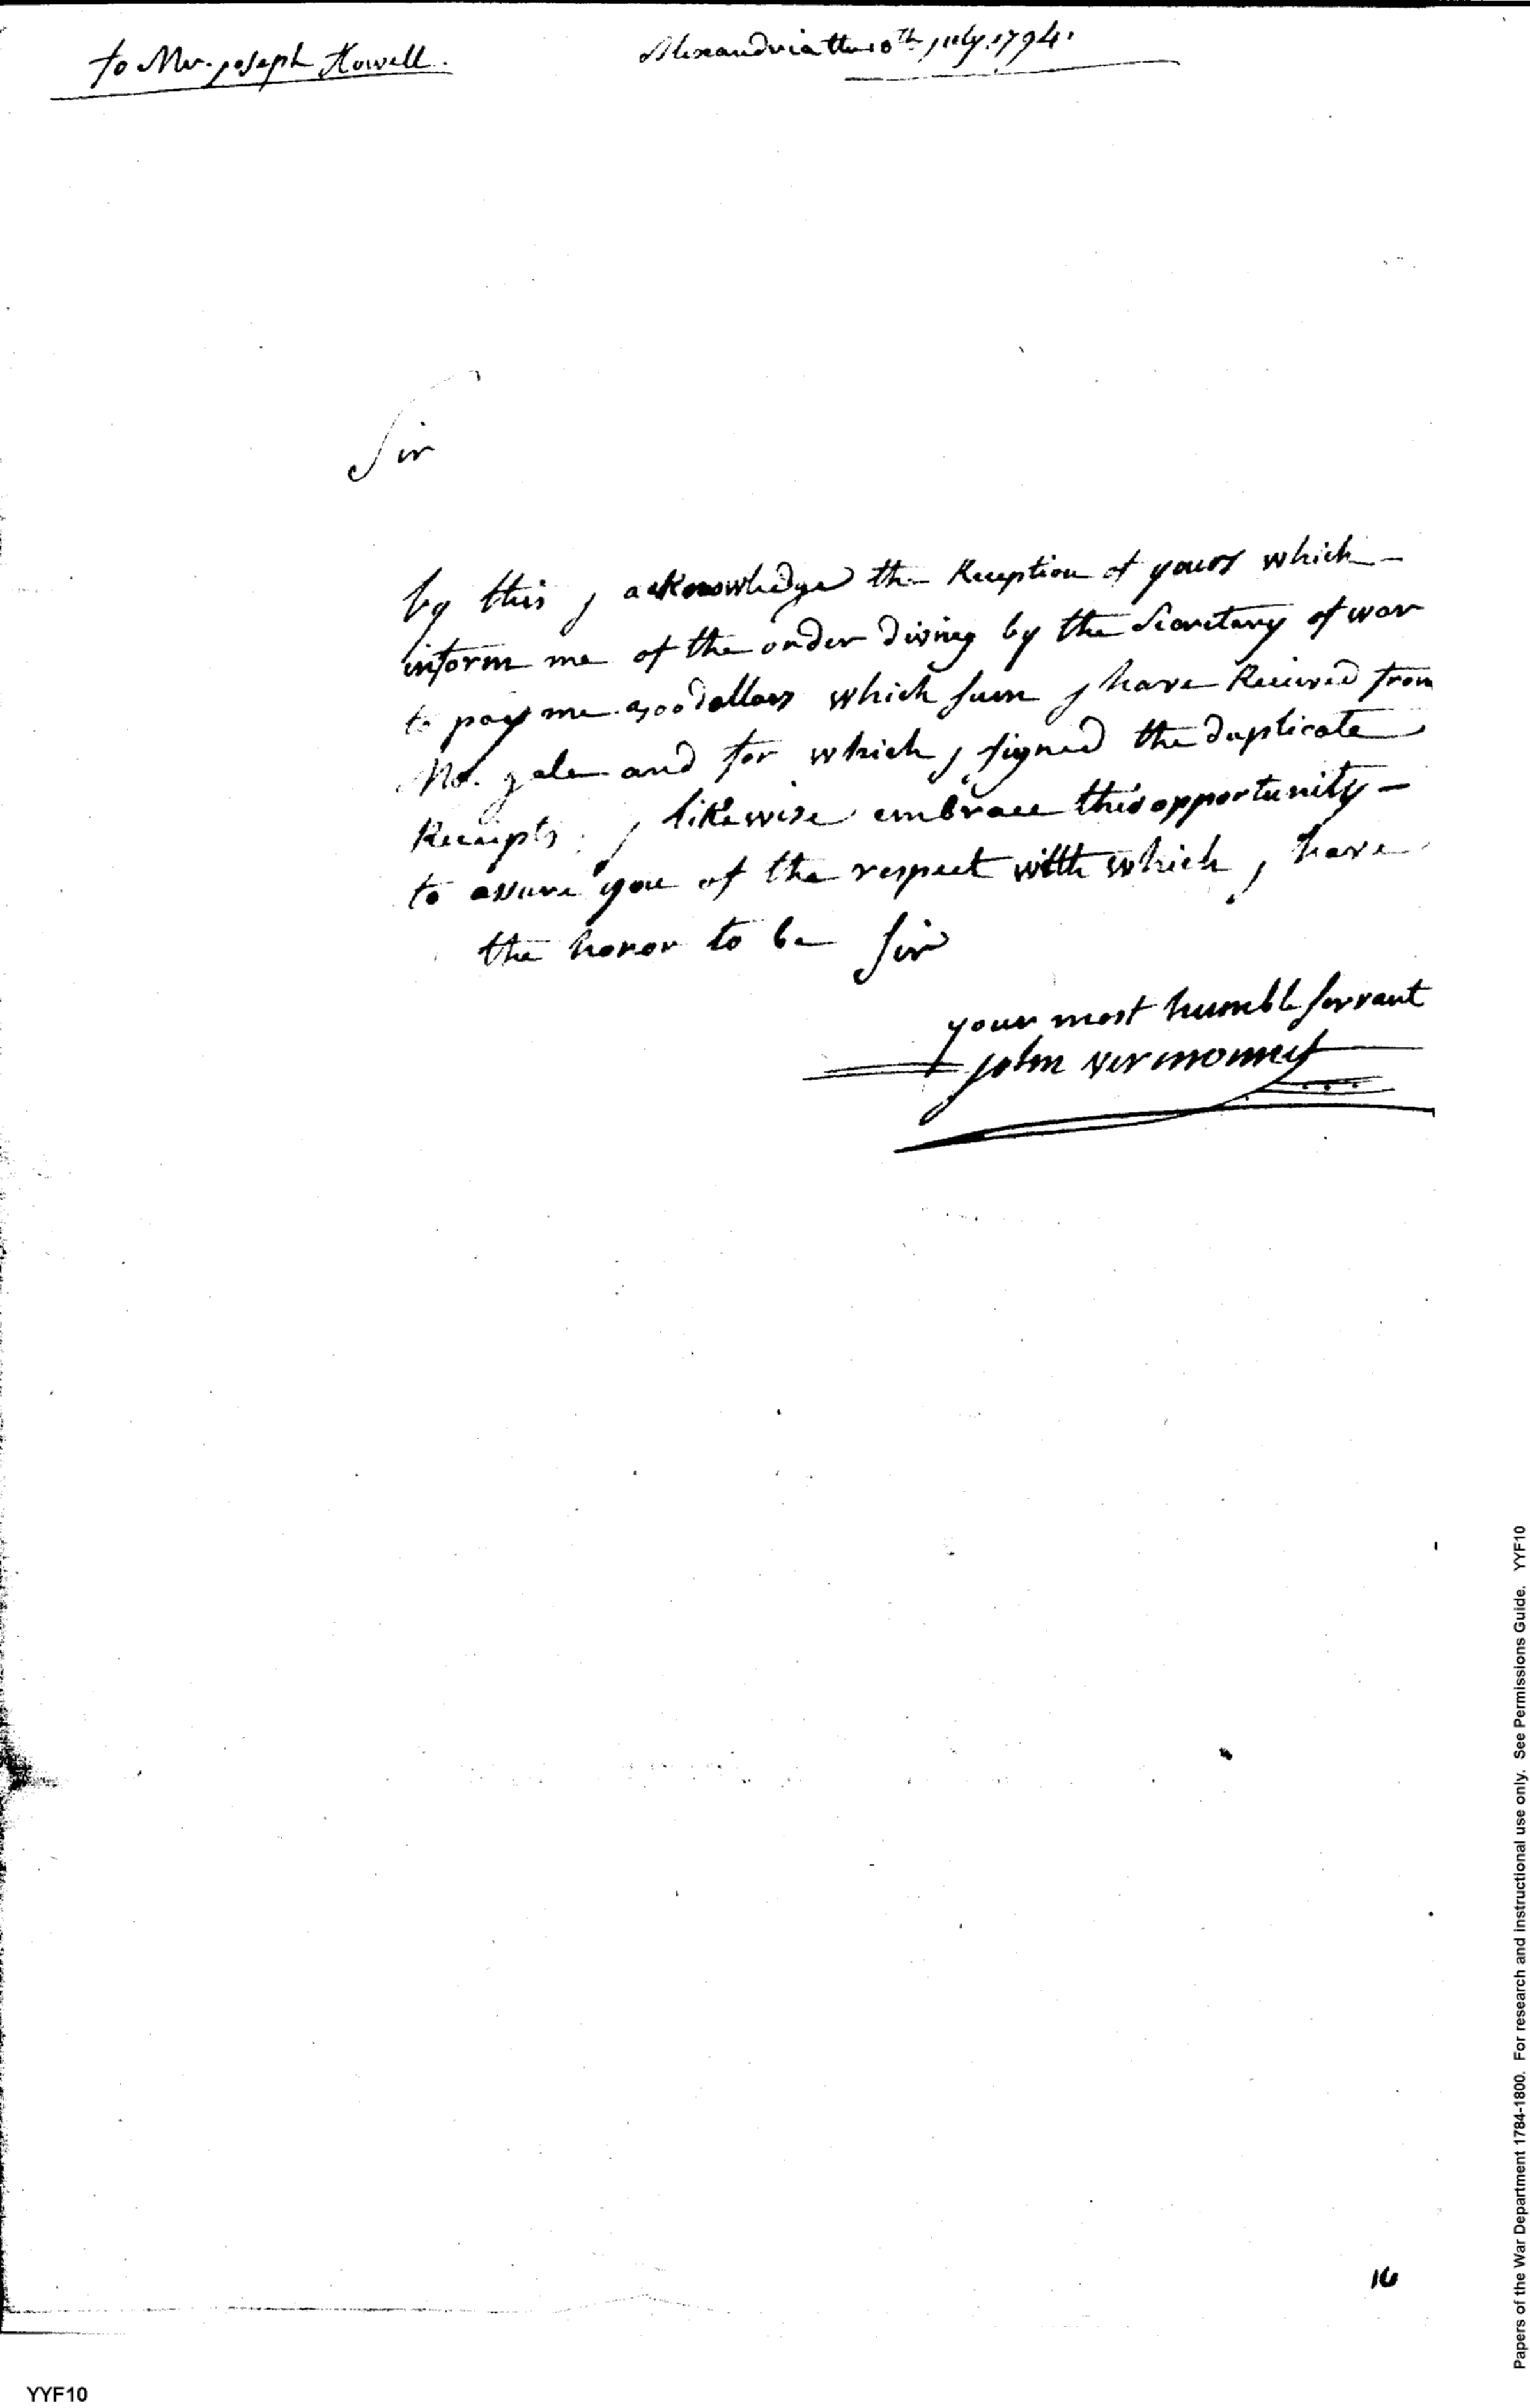 to Mr. joseph Howell.
Alexandria the 10th july. 1794.
Sir
by this j acknowledge the Reception of yours which
inform me of the order diving by the Secretary of war
to pay me dollars which sum j have Recieved from
Mr. and for which j signed the duplicate
Receipts. j likewise embrace this opportunity
to assure you of the respect with which j have
the honor to be Sir
your most humble servant
john vermonnet
16
YYF10
Papers of the War Department 1784-1800. For research and instructional use only. See Permissions Guide. YYF10